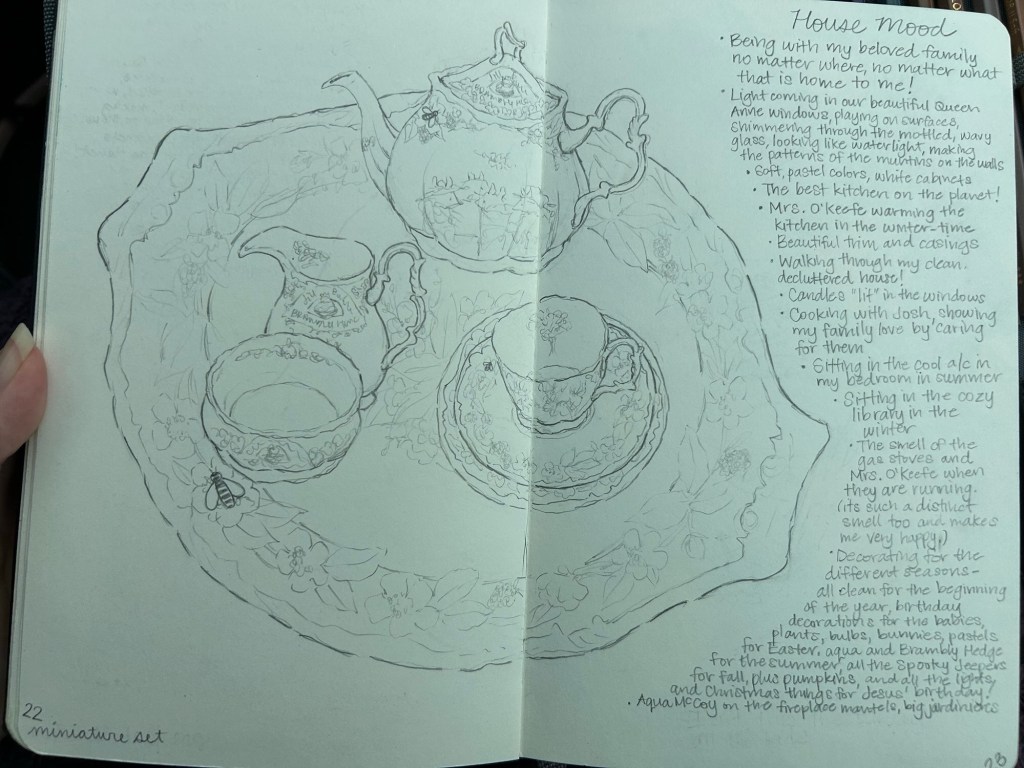 House Mood
• Being with my beloved family
no matter where, no matter what
that is home to me!
• Light coming in our beautiful Queen
Anne windows, playing on surfaces,
shimmering through the mottled, wavy
glass, looking like waterlight, making
the patterns of the muntins on the walls
• Soft, pastel colors, white cabinets
• The best kitchen on the planet!
• Mrs. O'Keefe warming the
kitchen in the winter-time
• Beautiful trim and casings
• Walking through my clean,
decluttered house!
• Candles "lit" in the windows
• Cooking with Josh, showing
my family love by caring
for them
• Sitting in the cool a/c in
my bedroom in summer
• Sitting in the cozy
library in the
winter
• The smell of the
gas stoves and
Mrs. O'Keefe when
they are running.
(its such a distinct
smell too and makes
me very happy!)
• Decorating for the
different seasons-
all clean for the beginning
of the year, birthday
decorations for the babies,
plants, bulbs, bunnies, pastels
for Easter, aqua and Brambly Hedge
for the summer, all the Spooky Jeepers
for fall, plus pumpkins, and all the lights,
and Christmas things for Jesus' birthday!
• Aqua McCoy on the fireplace mantels, big jardinieres
22
miniature set
23